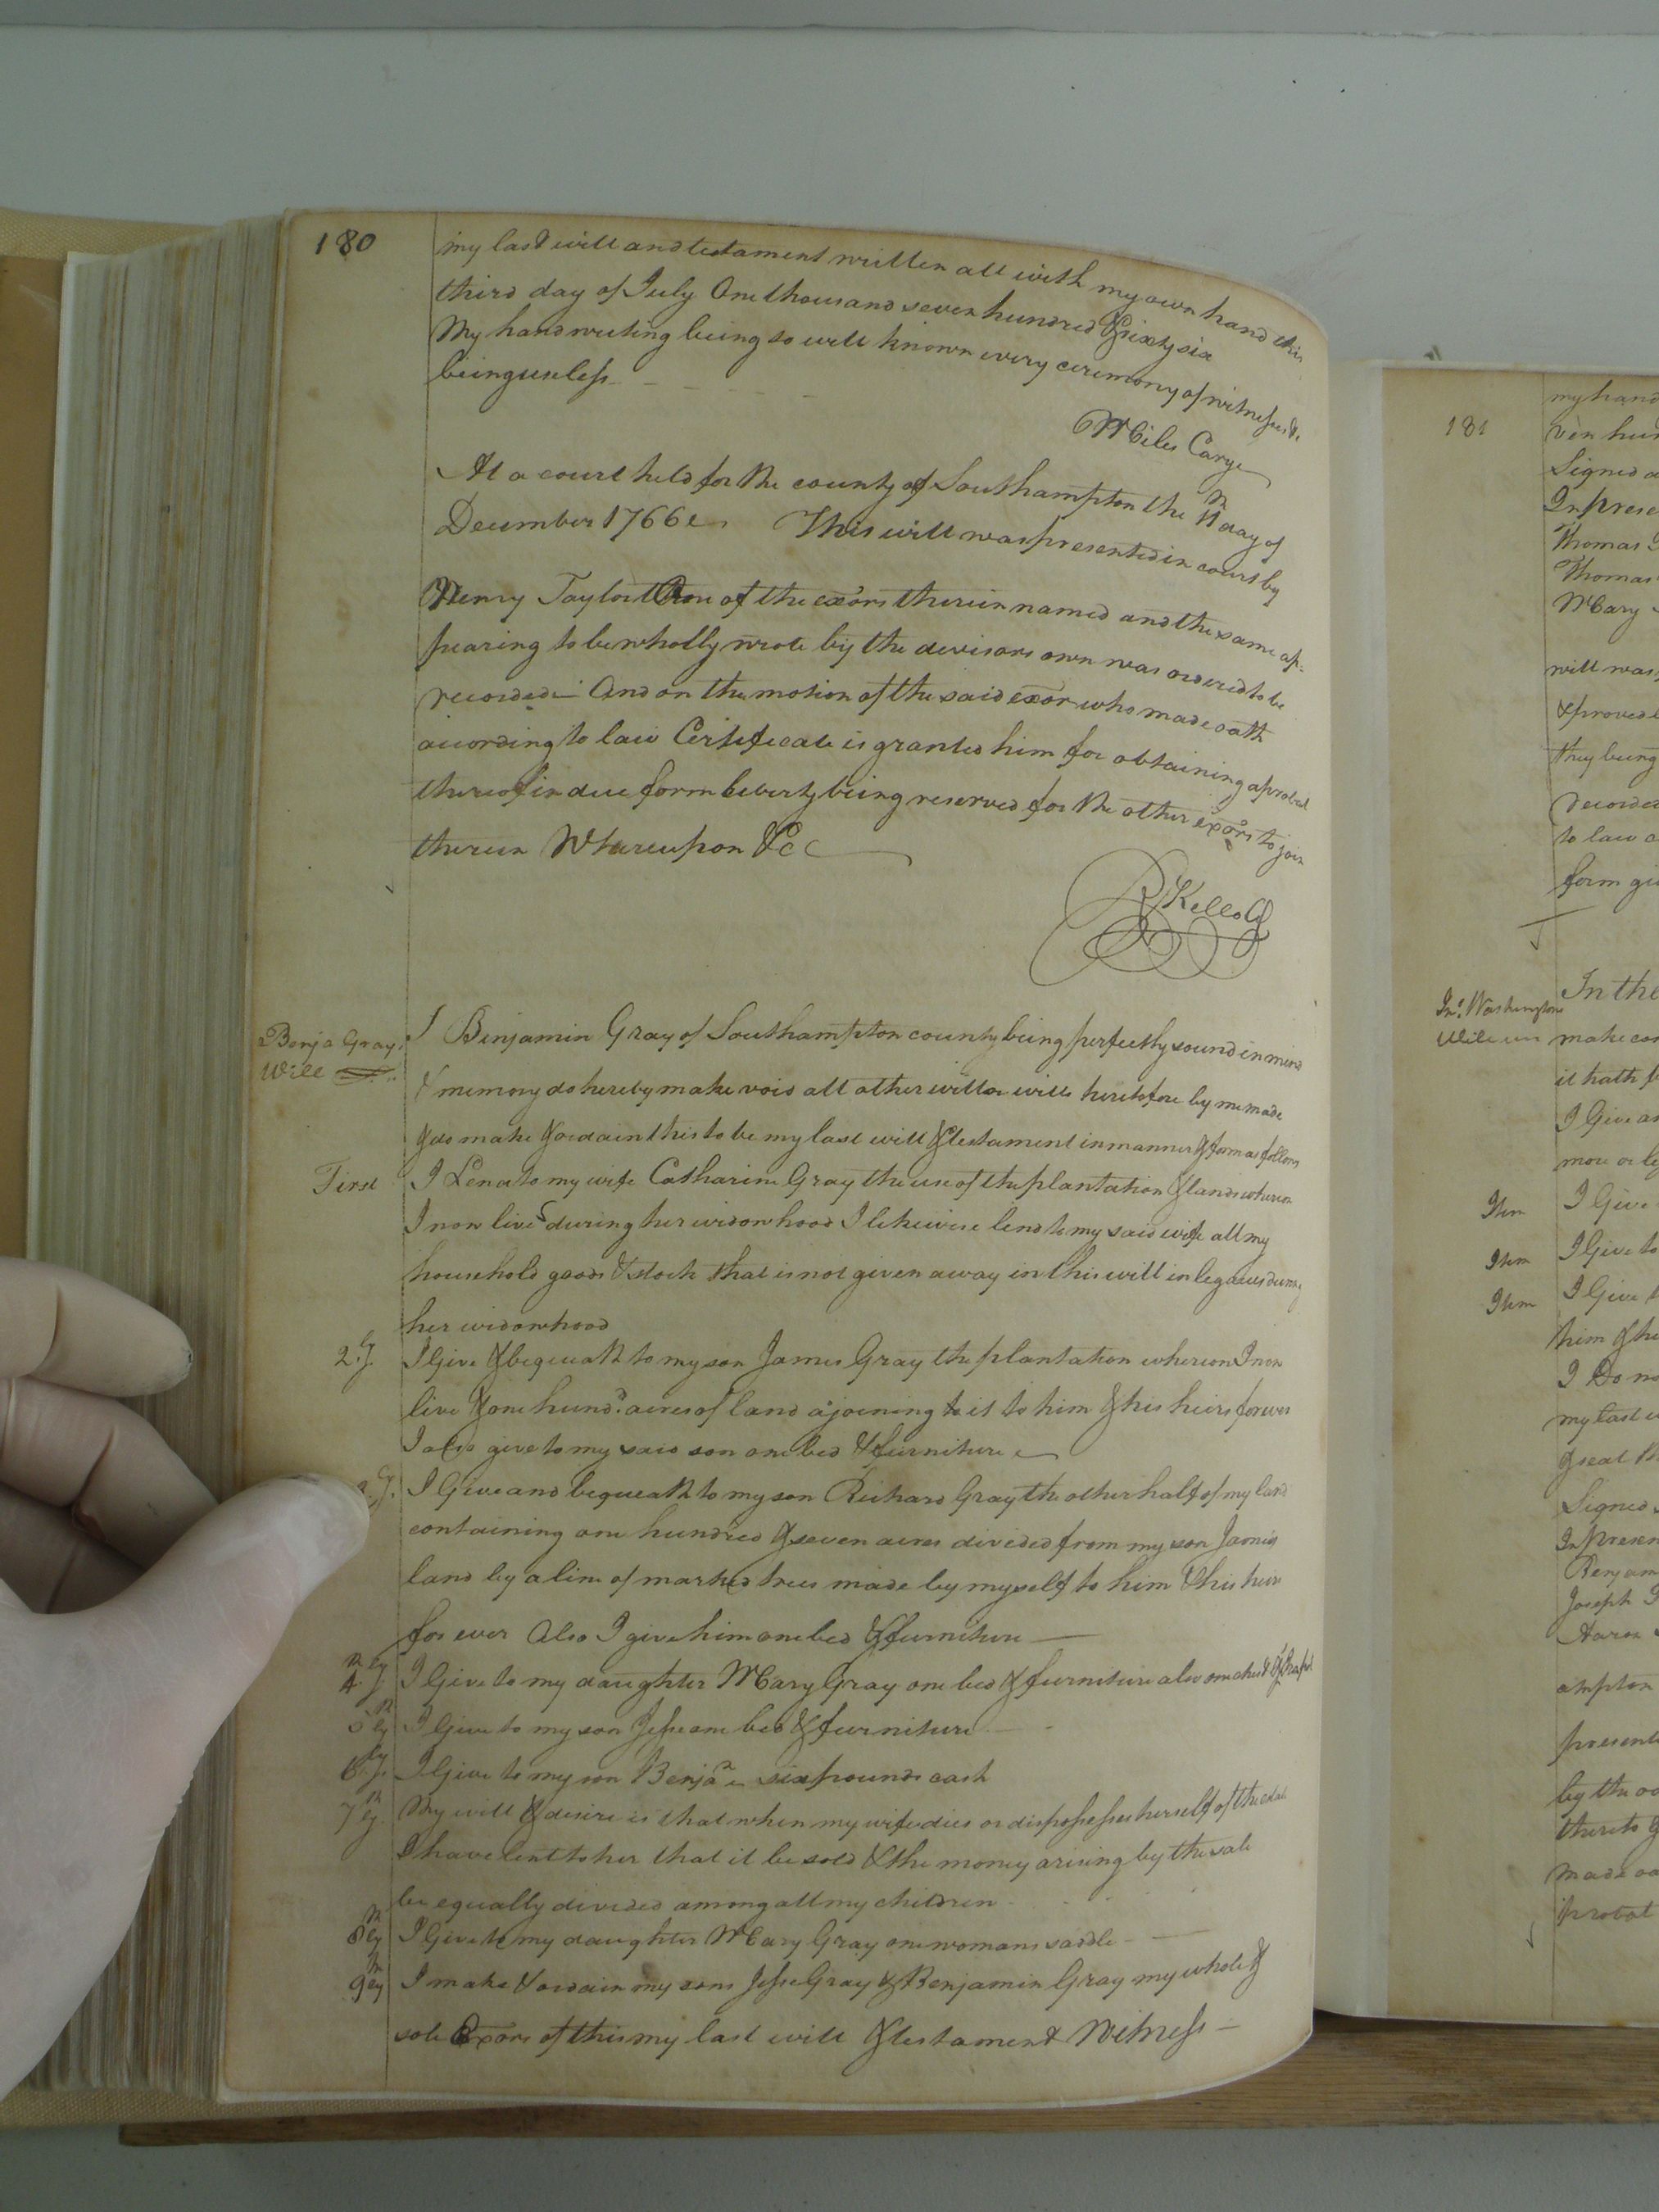 180
my last will and testament written all with my own hand this
third day of July One thousand seven hundred & sixty six
My hand writing being so well known every ceremony of witnesses &c
being useless
Miles Cary
At a court held for the county of Southampton the 11th day of
December 1766
This will was presented in court by
Henry Taylor One of the exōrs therein named and the same ap-
pearing to be wholly wrote by the devisors own was ordered to be
recorded And on the motion of the said exōr who made oath
according to law Certificate is granted him for obtaining a probat
thereof in due form Leverty being reserved for the other exōrs to join
therein Whereupon &c
R Kello C
Benja Gray
Will
I Benjamin Gray of Southampton county being perfectly sound in mind
& memory do hereby make void all other will or wills heretofore by me made
& do make & ordain this to be my last will & testament in manner & form as follows
First I Lend to my wife Catharine Gray the use of the plantation & lands whereon
I now live during her widowhood I likewise lend to my said wife all my
household goods & stock that is not given away in this will in legacies during
her widowhood
2.ly I Give & bequeath to my son James Gray the plantation whereon I now
live & one hund.d acres of land ajoining to it to him & his heirs forever
I also give to my said son one bed & furniture
I Give and bequeath to my son Richard Gray the other half of my land
containing one hundred & seven acres divided from my son James
land by a line of marked trees made by myself to him & his heirs
for ever Also I give him one bed & furniture
4.thly I Give to my daughter Mary Gray one bed & furniture also one chest &
5thly I Give to my son Jesse one bed & furniture
6.ly I Give to my son Benja.n six pounds cash
7thly My will & desire is that when my wife dies or dispossesses herself of the estate
I have lent to her that it be sold & the money arising by the sale
be equally divided among all my children
8thly I Give to my daughter Mary Gray one womans saddle
9thly I make & ordain my sons Jesse Gray & Benjamin Gray my whole &
sole Exōrs of this my last will & testament Witness
181
my hand
ven hun
Signed a
In prese
Thomas
Thomas
Mary
will was
& proved
they being
recorded
to law a
form gi
Jn.o Washington
Will
In the
make
it hath
I Give an
more or le
Item I Give
Item I Give to
Item I Give
him & he
I Do
my last
great
Signed
In presen
Benjam
Joseph
Aaron
ampton
present
by the oa
thereto
made oa
probat